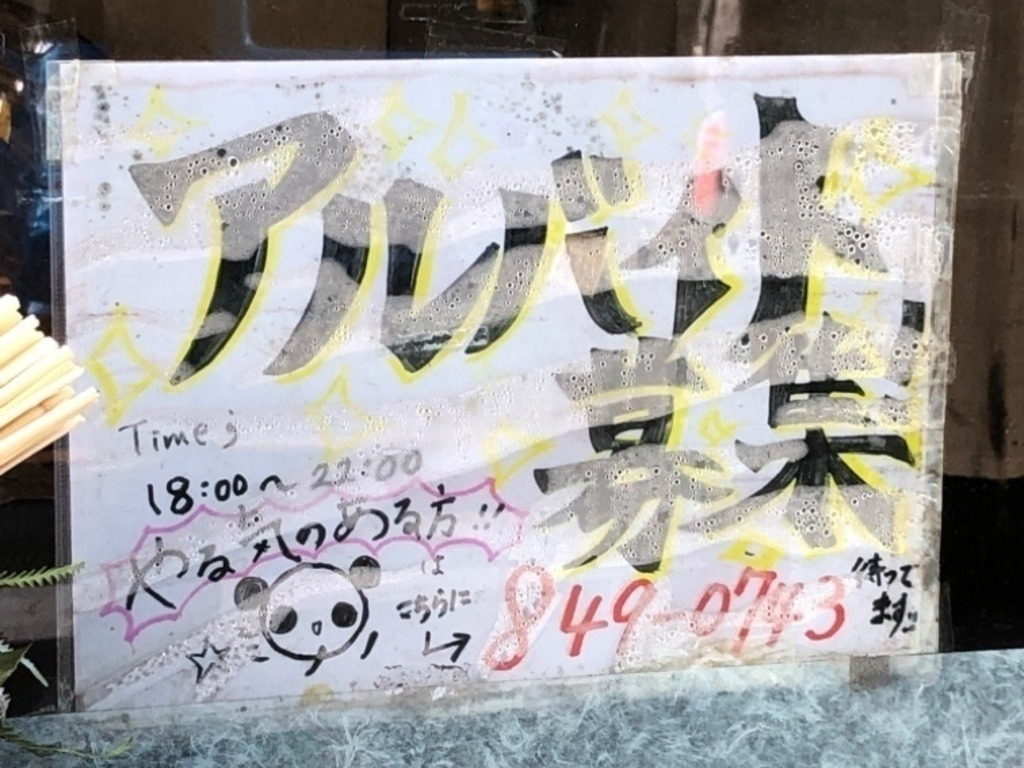 アルバイト
募集
Time;
18:00〜22:00
やる気のある方!!
は
こちらに
849-0743
待って
ます!!